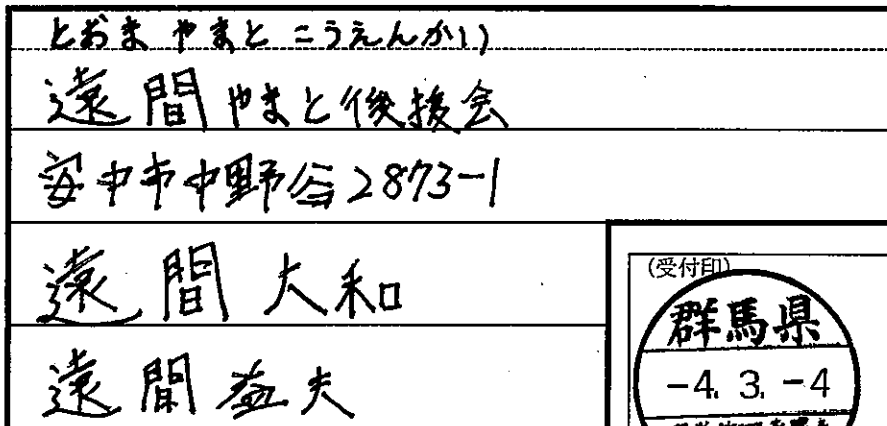 とおま やまと こうえんかい
遠間やまと後援会
安中市中野谷2873-1
遠間 大和
遠間 益夫
(受付印)
群馬県
-4. 3. -4